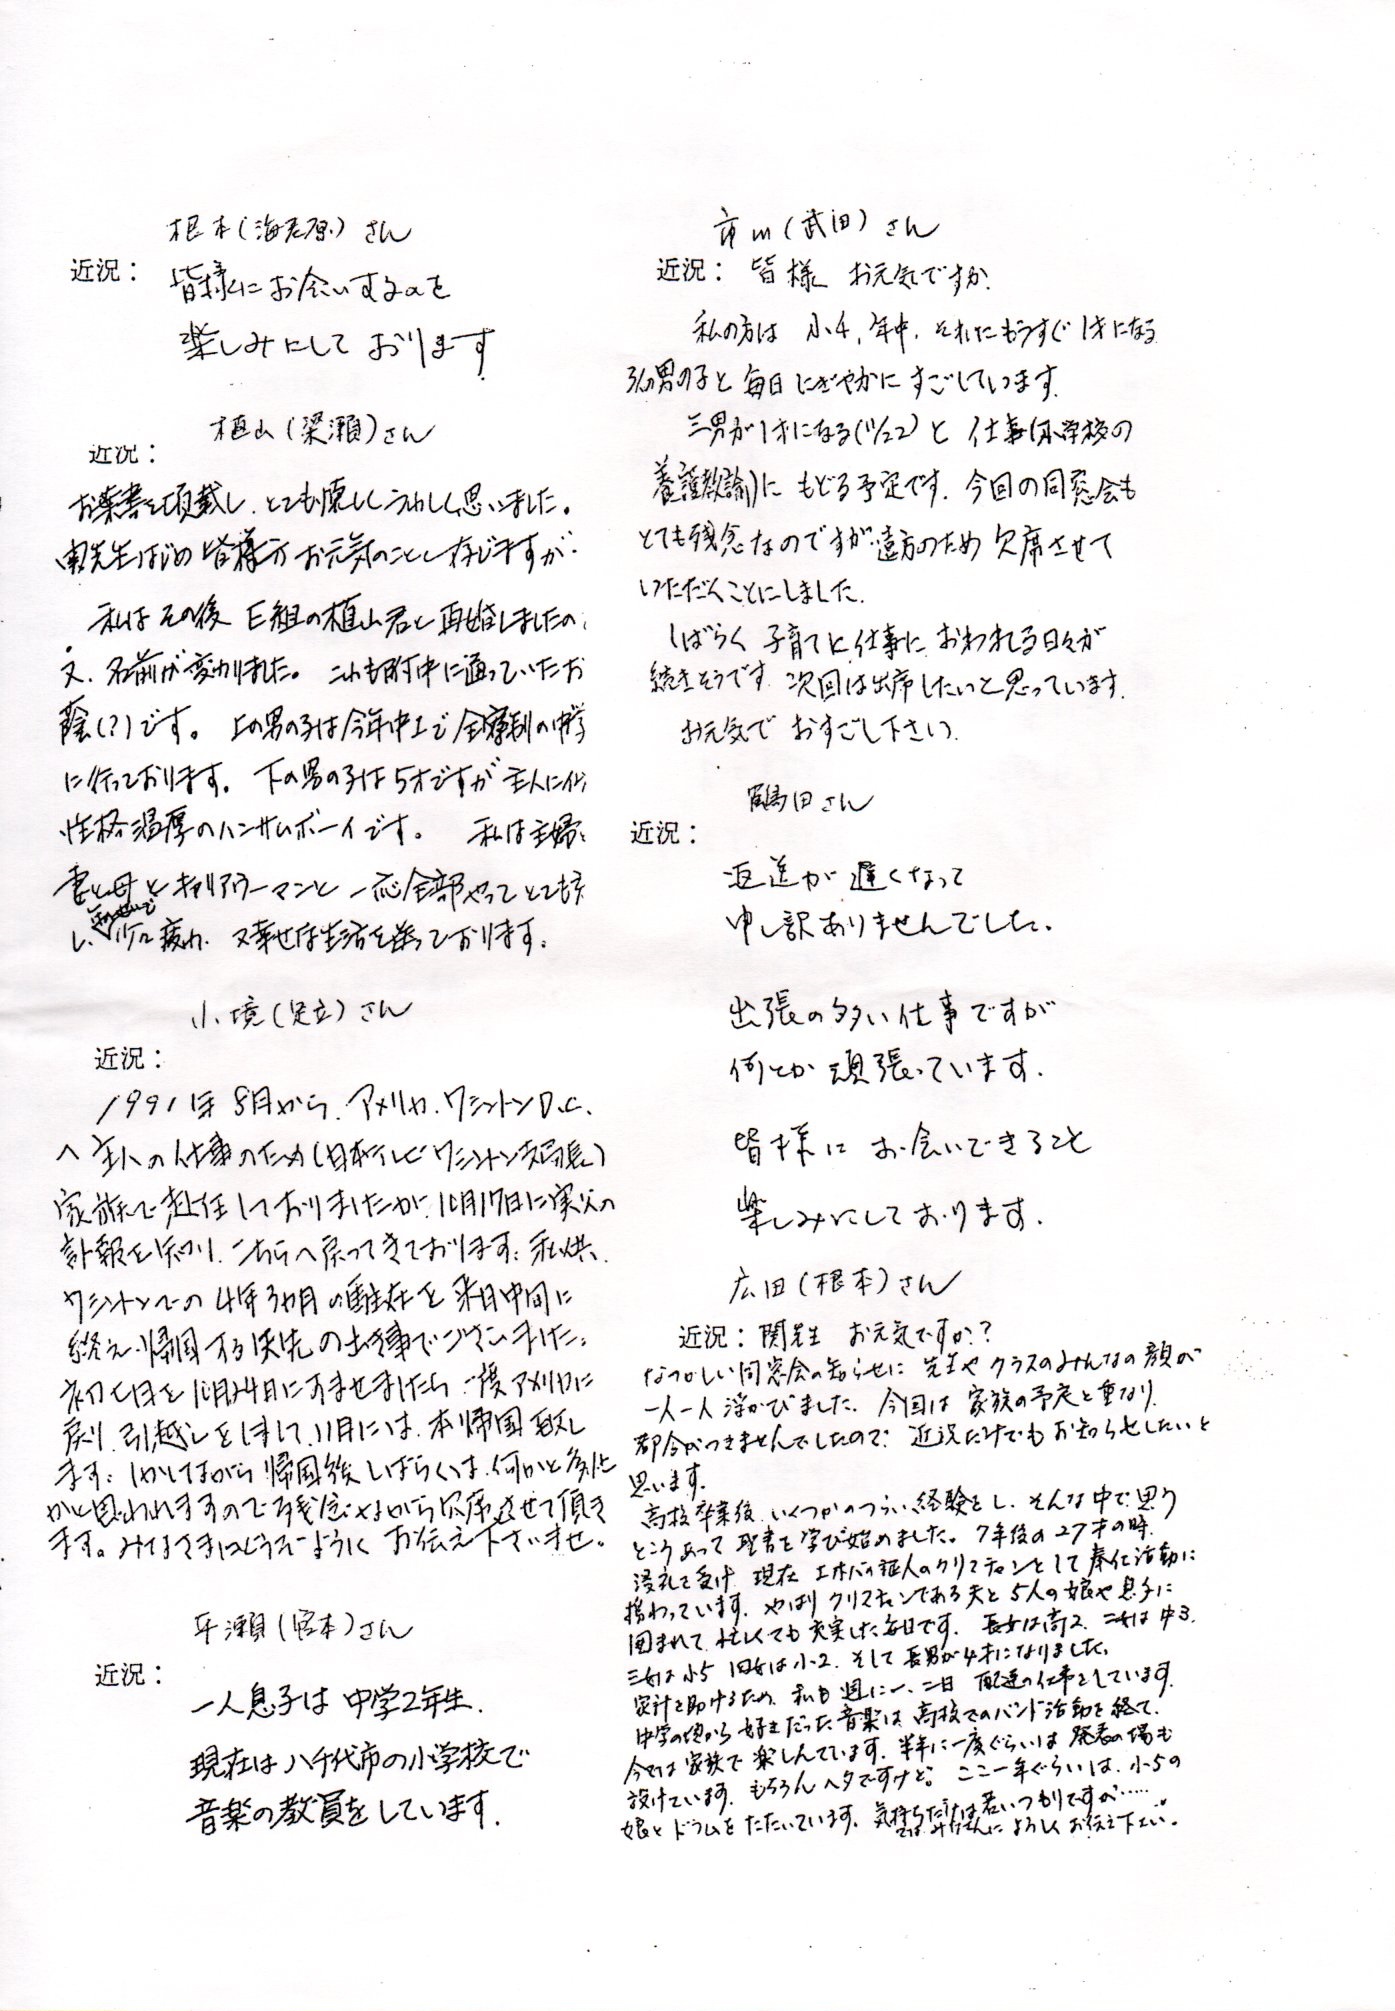 根本(海老原)さん
近況：
皆様にお会いするのを
楽しみにしております
植山(梁瀬)さん
近況：
お葉書を頂戴し、とても懐しくうれしく思いました。
関先生はじめ皆様方お元気のことと存じますが、
私はその後E組の植山君と再婚しましたの
又、名前が変わりました。これも附中に通っていたお
陰(?)です。上の男の子は今年中1で全寮制の中学
に行っております。下の男の子は5才ですが主人に似
性格温厚のハンサムボーイです。私は主婦と
妻と母とキャリアウーマンと一応全部やってとても
し、少々疲れ、又幸せな生活を送っております。
小境(足立)さん
近況：
1991年8月から、アメリカ、ワシントンD.C.
へ主人の仕事のため(日本テレビワシントン支局長)
家族で赴任しておりましたが、10月17日に実父の
訃報を知り、こちらへ戻ってきております。私共、
ワシントンでの4年3ヵ月の駐在を来月中間に
終え、帰国する矢先の出来事でございました。
初七日を10月24日にすませましたら一度アメリカに
戻り、引越しをして、11月には、本帰国致し
ます。しかしながら帰国後しばらくは、何かと多忙
かと思われますので残念ながら欠席させて頂き
ます。みなさまにどうぞよろしくお伝え下さいませ。
平瀬(宮本)さん
近況：
一人息子は中学2年生、
現在は八千代市の小学校で
音楽の教員をしています。
市川(武田)さん
近況：皆様お元気ですか。
私の方は小4、年中、それにもうすぐ1才になる
3人の男の子と毎日にぎやかにすごしています。
三男が1才になる(11/22)と仕事(小学校の
養護教諭)にもどる予定です。今回の同窓会も
とても残念なのですが遠方のため欠席させて
いただくことにしました。
しばらく子育てと仕事におわれる日々が
続きそうです。次回は出席したいと思っています。
お元気でおすごし下さい。
鶴田さん
近況：
返送が遅くなって
申し訳ありませんでした。
出張の多い仕事ですが
何とか頑張っています。
皆様にお会いできること
楽しみにしております。
広田(根本)さん
近況：関先生お元気ですか？
なつかしい同窓会の知らせに先生やクラスのみんなの顔が
一人一人浮かびました。今回は家族の予定と重なり
都合がつきませんでしたので、近況だけでもお知らせしたいと
思います。
高校卒業後、いくつかのつらい経験をし、そんな中で思う
ところあって聖書を学び始めました。7年後の27才の時、
浸礼を受け、現在エホバの証人のクリスチャンとして奉仕活動に
携わっています。やはりクリスチャンである夫と5人の娘や息子に
囲まれて、忙しくても充実した毎日です。長女は高2、二女は中3、
三女は小5、四女は小2、そして長男が4才になりました。
家計を助けるため、私も週に一、二日配達の仕事をしています。
中学の頃から好きだった音楽は、高校でのバンド活動を経て、
今では家族で楽しんでいます。半年に一度ぐらいは発表の場も
設けています。もちろんヘタですけど。ここ一年ぐらいは、小5の
娘とドラムをたたいています。気持ちだけは若いつもりですが……。
ではみなさんによろしくお伝え下さい。